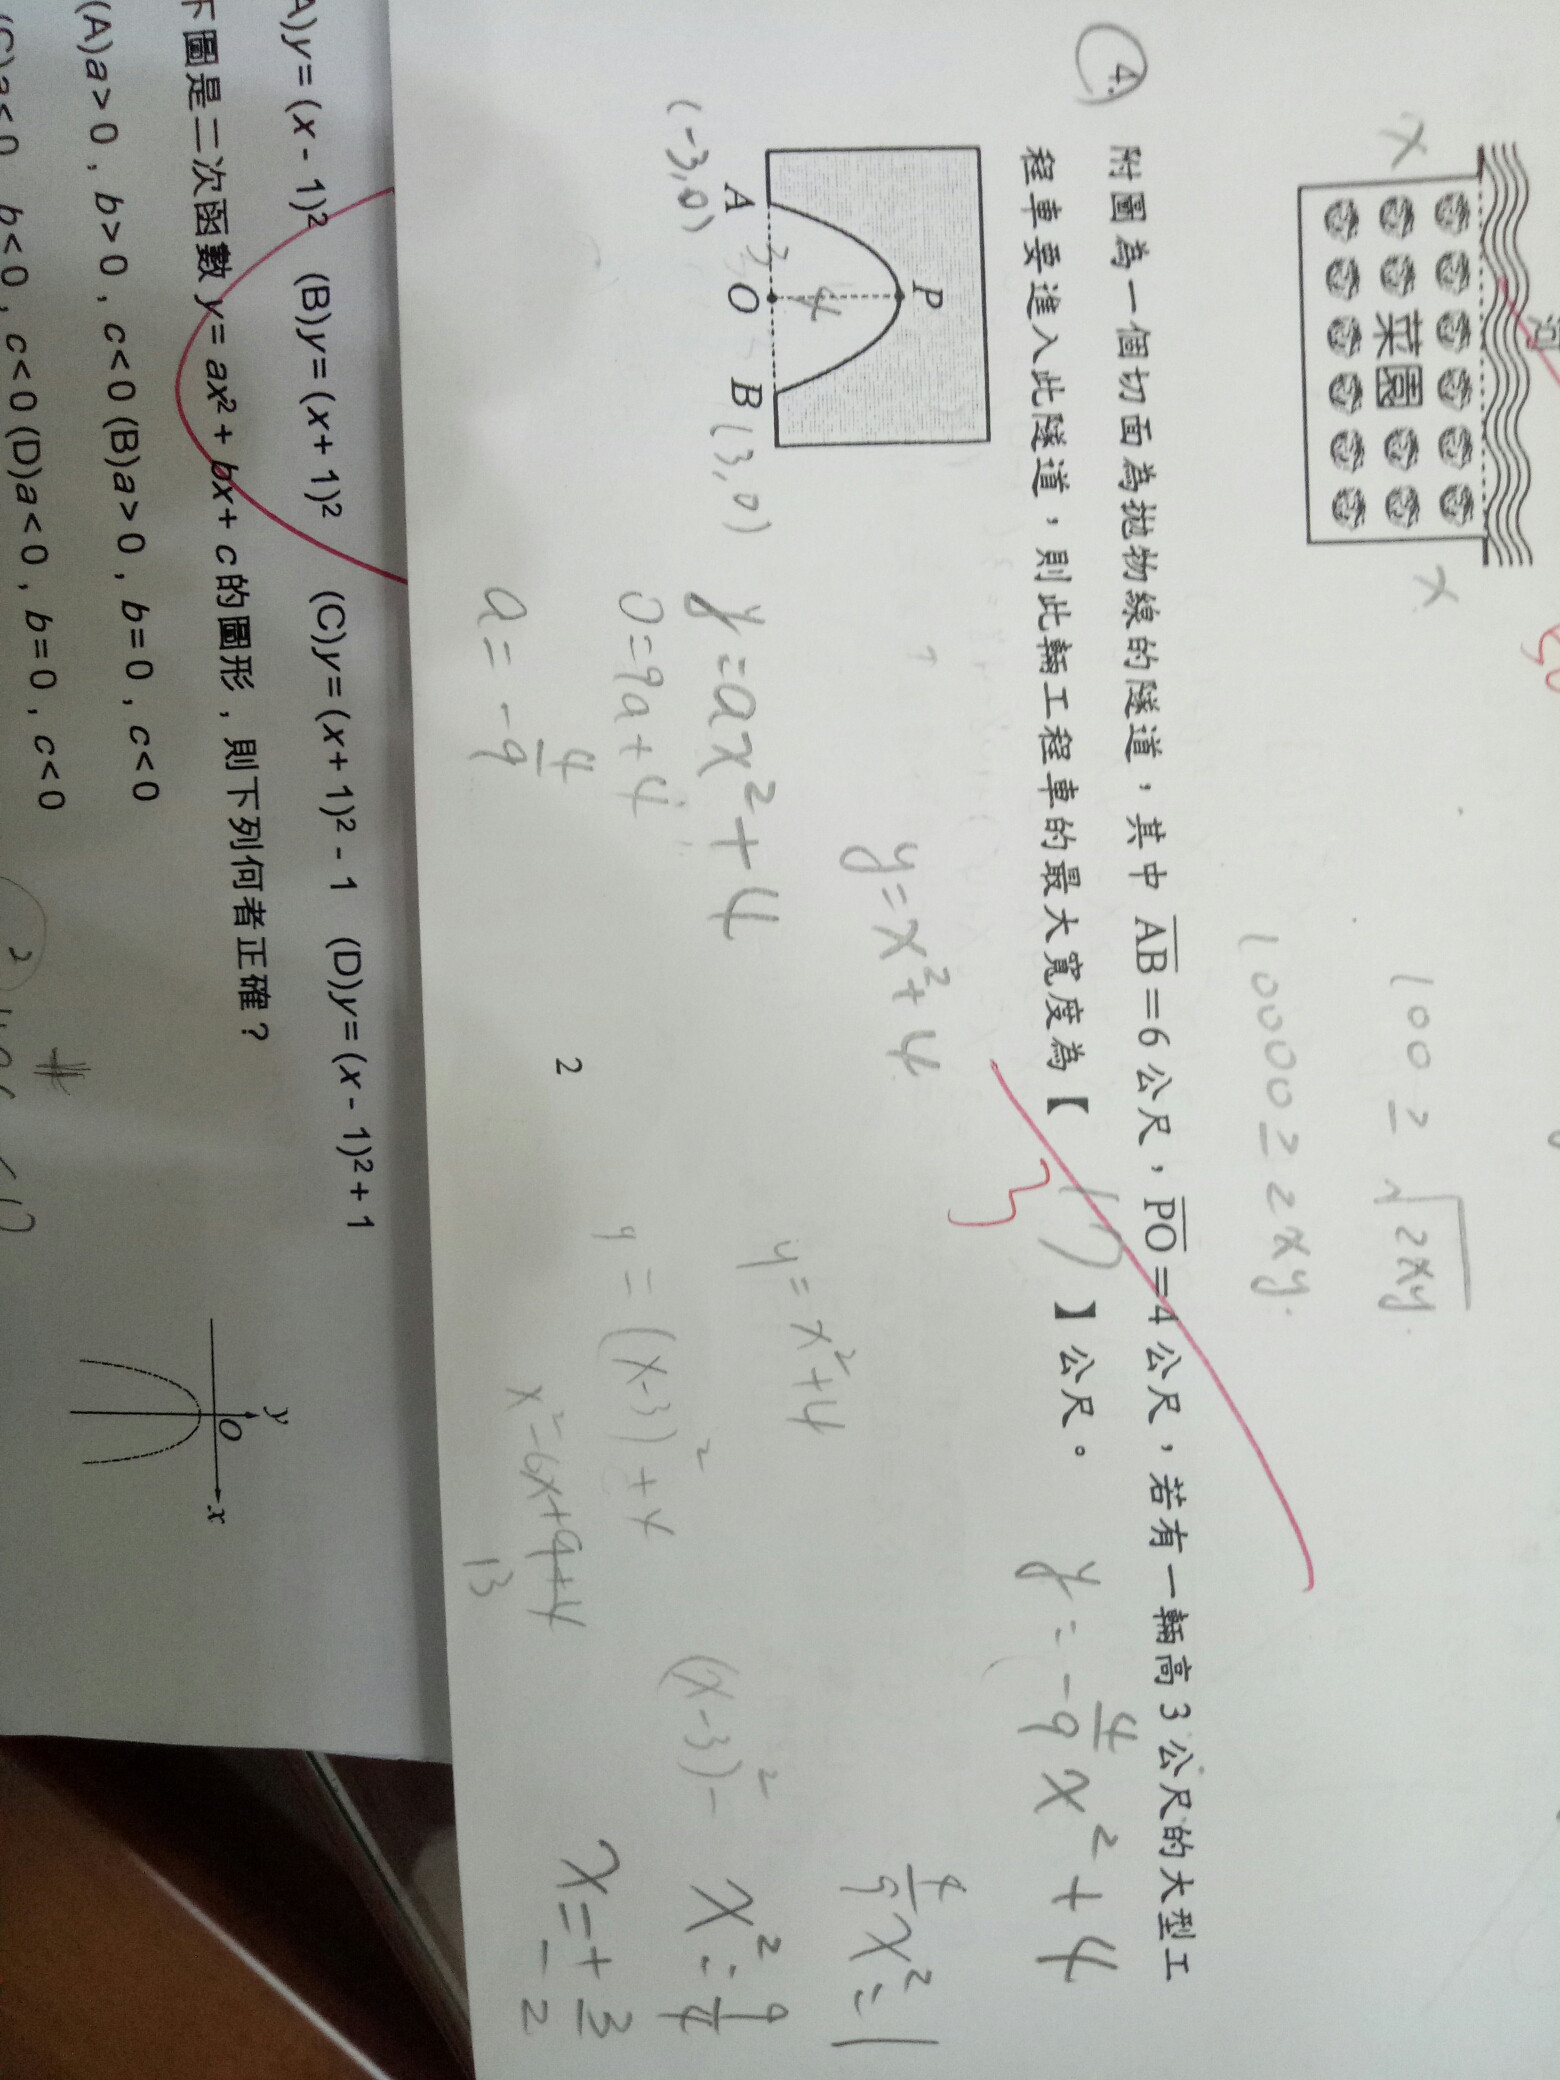 河
菜園
x
x
50
100 ≥ √2xy
10000 ≥ 2xy.
4. 附圖為一個切面為拋物線的隧道，其中 AB＝6 公尺，PO＝4 公尺，若有一輛高 3 公尺的大型工
程車要進入此隧道，則此輛工程車的最大寬度為【 17 】公尺。
3
P
4
3
A
O
B
(-3,0)
(3,0)
y=x²+4
y=ax²+4
0=9a+4
a=-4/9
y=x²+4
y=(x-3)²+4
x²-6x+9+4
13
(x-3)²-
y=-4/9x²+4
4/9x²=1
x²=9/4
x=±3/2
2
A)y=(x-1)² (B)y=(x+1)² (C)y=(x+1)²-1 (D)y=(x-1)²+1
下圖是二次函數 y=ax²+bx+c 的圖形，則下列何者正確？
(A)a>0，b>0，c<0 (B)a>0，b=0，c<0
(C)a<0，b<0，c<0 (D)a<0，b=0，c<0
y
O
x
2